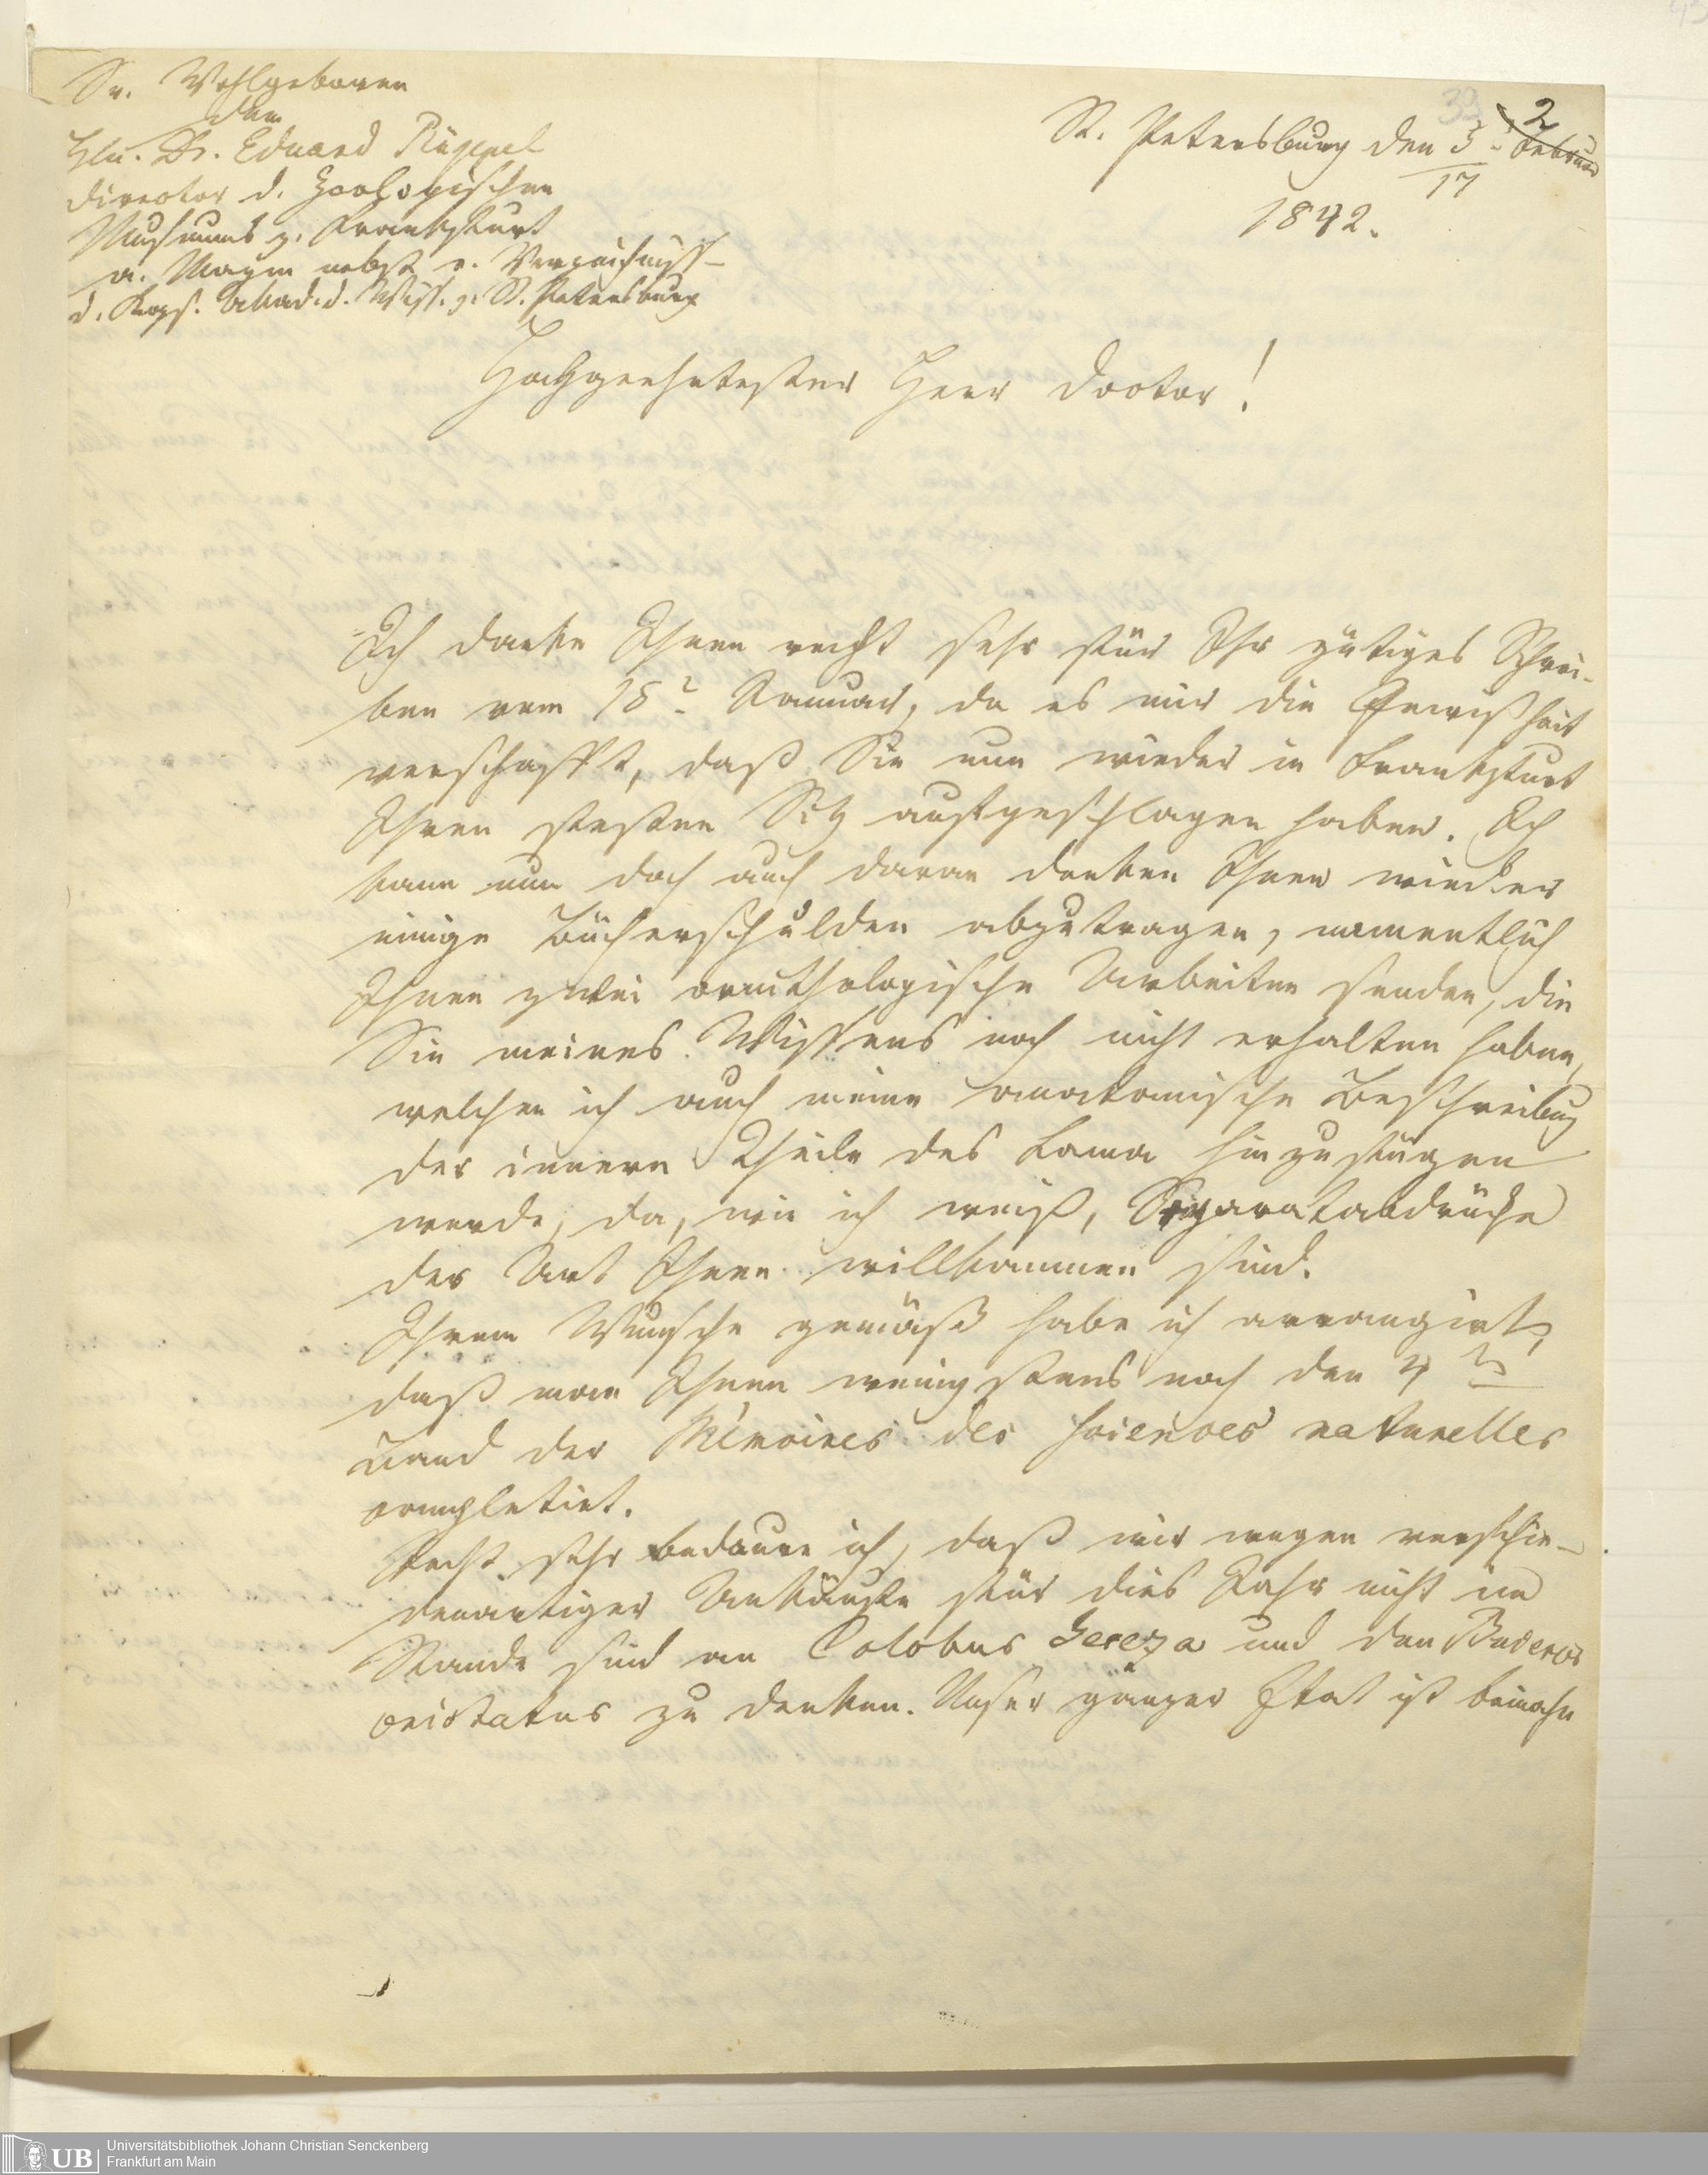 Sr. Wohlgeboren
dem
Hrn. Dr. Eduard Rüppel
Director d. Zoologischen
Museums z. Frankfurt
a. Mayn nebst e. Verzeichniss
d. Kays. Akad. d. Wiss. z. St. Petersburg
33
2
St. Petersburg den 5. Februar
17
1842.
Hochgeehrtester Herr Doctor!
Ich danke Ihnen recht sehr für Ihr gütiges Schrei-
ben vom 18. Januar, da es mir die Gewißheit
verschafft, daß Sie nun wieder in Frankfurt
Ihren festen Sitz aufgeschlagen haben. Ich
kann nun doch auch daran denken Ihnen wieder
einige Bücherschulden abzutragen, namentlich
Ihnen zwei ornithologische Arbeiten senden, die
Sie meines Wissens noch nicht erhalten haben,
welchen ich auch meine anatomische Beschreibung
der innern Theile des Lama hinzufügen
werde, da, wie ich weiß, Separatabdrücke
der Art Ihnen willkommen sind.
Ihrem Wunsche gemäß habe ich arrangirt,
daß man Ihnen wenigstens noch den 4
Band der Mémoires des sciences naturelles
completirt.
Recht sehr bedaure ich, daß wir wegen verschie-
denartiger Ankäufe für dies Jahr nicht im
Stande sind an Colobus Gereza und den
cristatus zu denken. Unser ganzer Etat ist beinahe
UB
Universitätsbibliothek Johann Christian Senckenberg
Frankfurt am Main